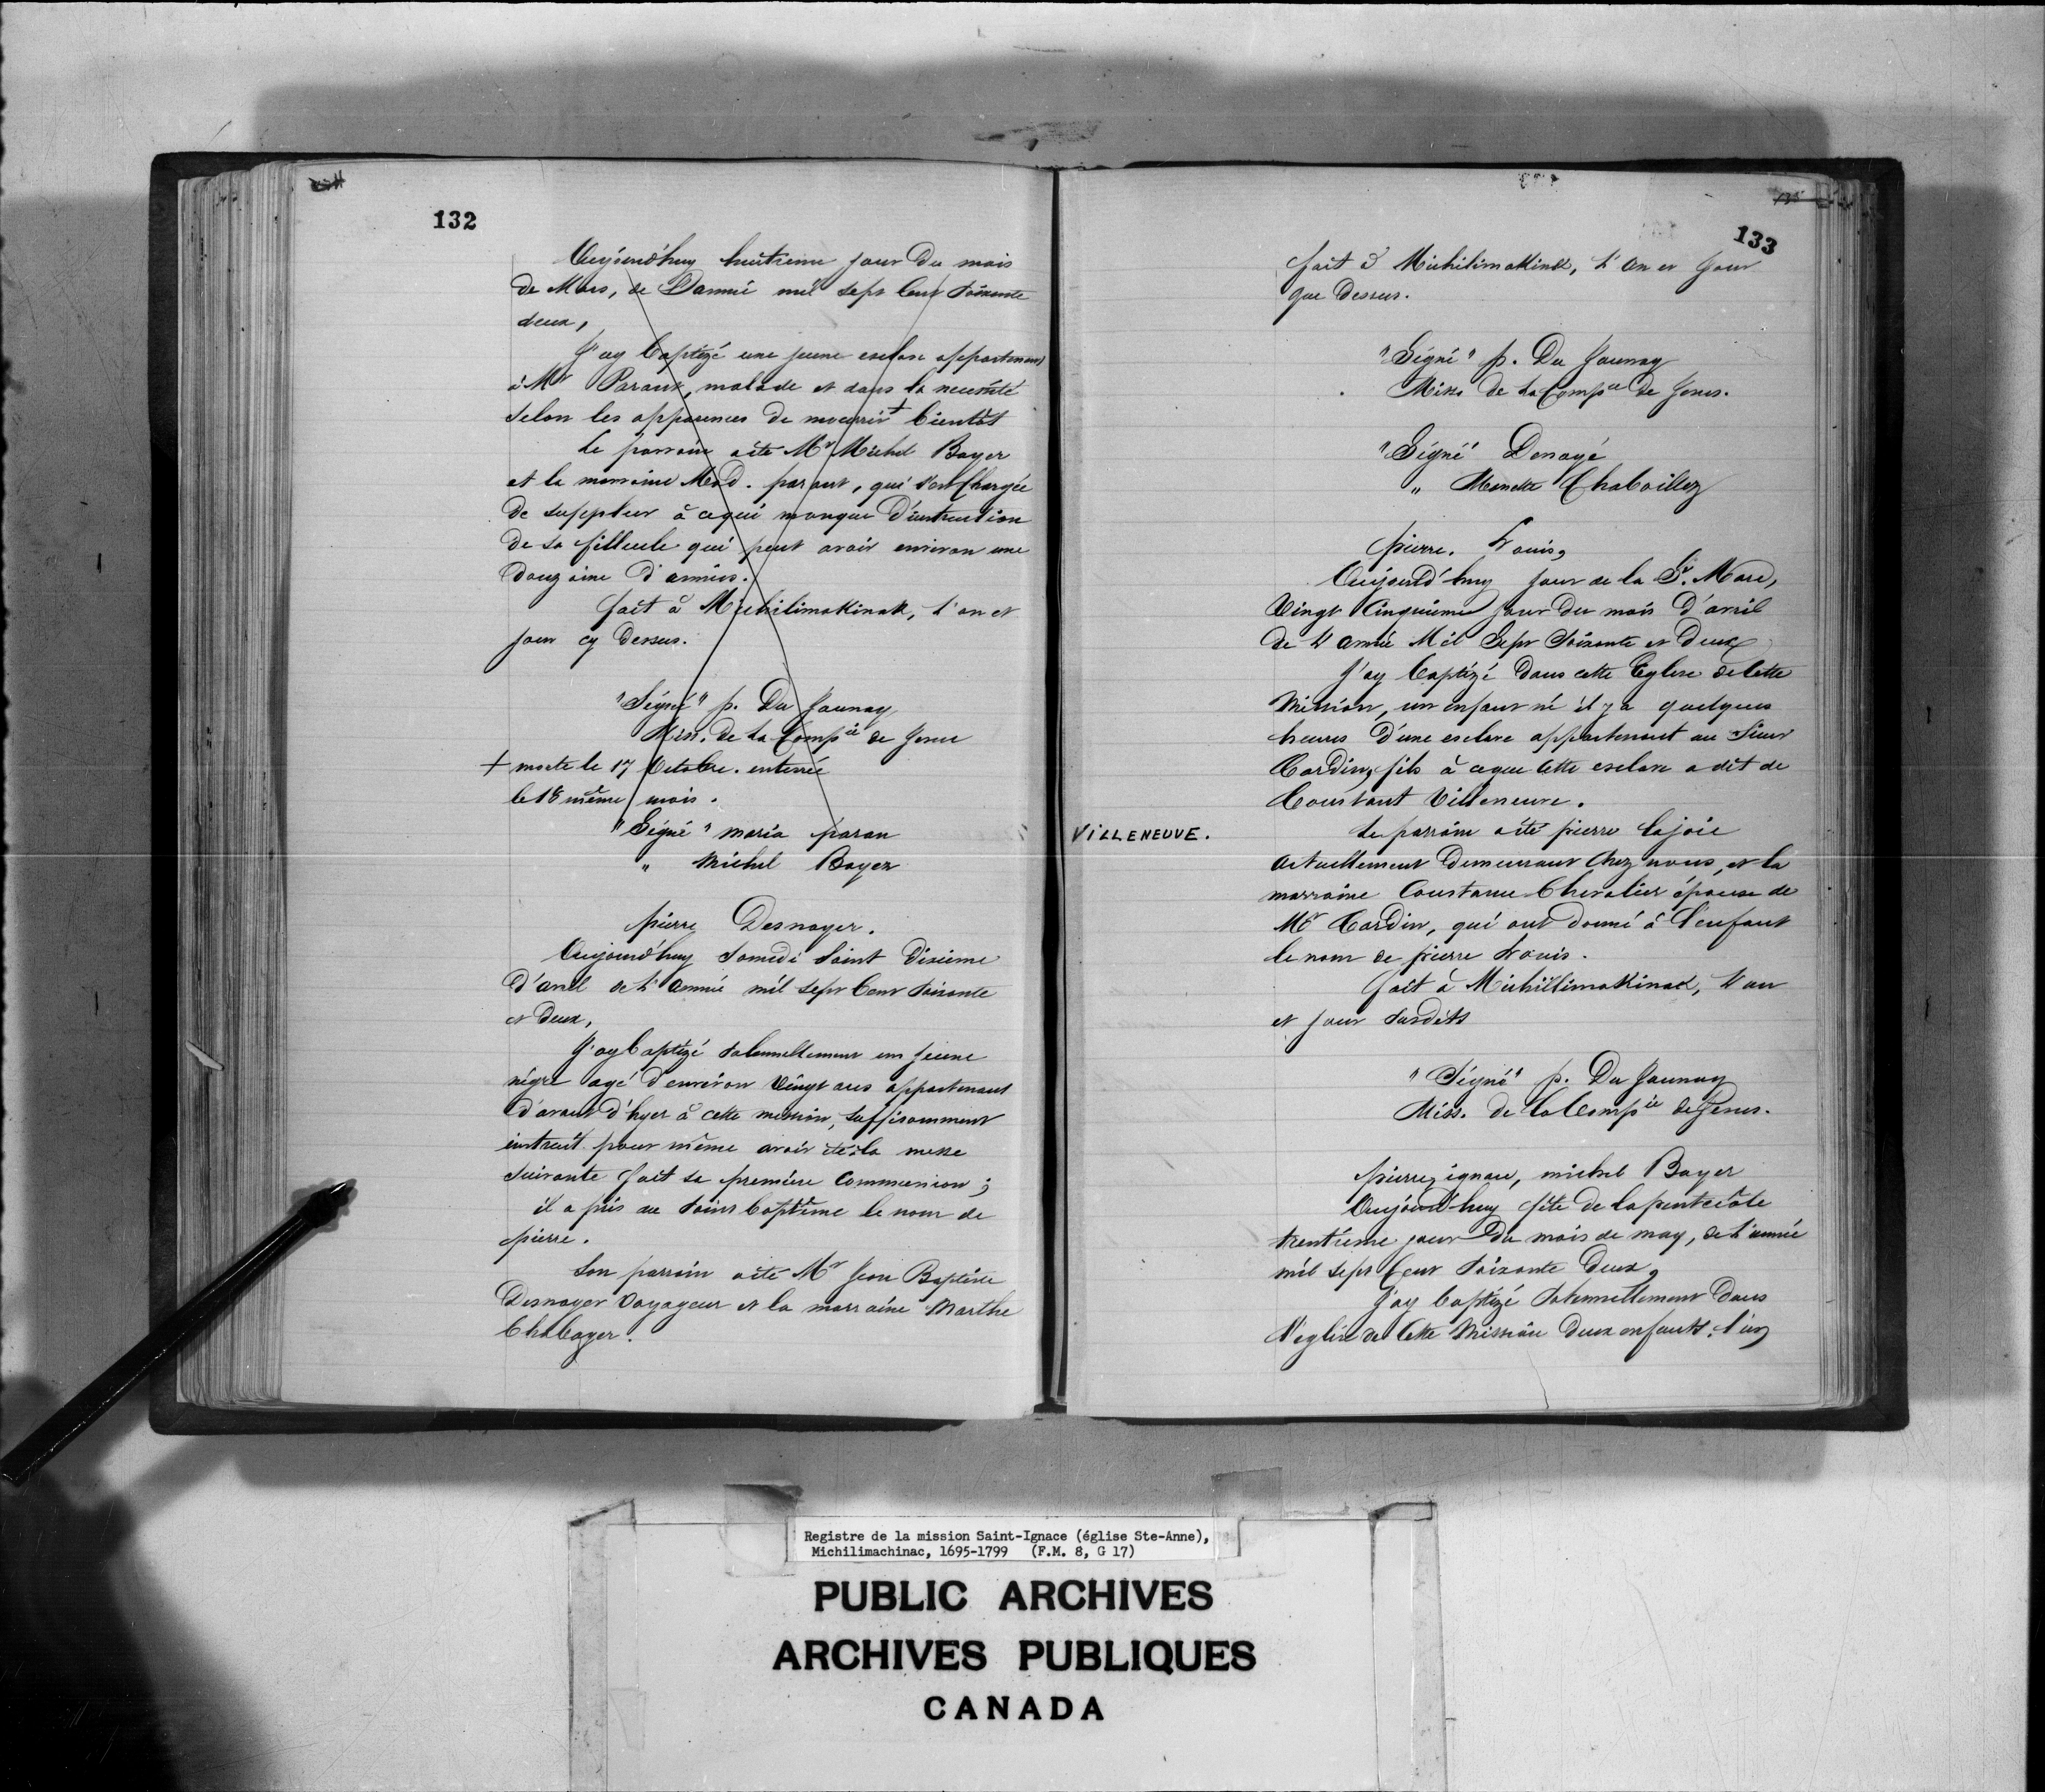 132
Aujourd'huy huitieme jour du mois
de Mars, de L'année mil sept cent soixante
deux,
J'ay baptizé une jeune esclave appartenant
à Mr Parant, malade et dans la necessité
selon les apparences de mourrir + bientôt
Le parrain a été Mr Michel Boyer
et la marraine Mad. parant, qui s'est chargée
de suppleer à ce qui manque d'instruction
de sa filleule qui peut avoir environ une
douzaine d'années.
fait à Michilimakinak, l'an et
jour cy dessus.
"Signé" p. Du Jaunay
Miss. de la Compie de Jesus
+ morte le 17 Octobre. enterrée
le 18 même mois.
"Signé" maria paran
" Michel Boyer
pierre Desnoyer.
Aujourd'huy Samedi Saint dixieme
d'avril de l'année mil sept cent soixante
et deux,
J'ay baptizé solennellement un jeune
négre agé d'environ vingt ans appartenant
d'avant d'hyer à cette mission, suffisamment
instruit pour même avoir à la messe
suivante fait sa première Communion ;
il a pris au saint baptême le nom de
pierre.
Son parrain a été Mr Jean Baptiste
Desnoyer Voyageur et la marraine Marthe
Chaboyer.
133
fait à Michilimakinak, l'an et jour
que dessus.
"Signé" p. Du Jaunay
Miss de la Compie de Jesus.
"Signé" Denoyé
" Manette Chaboillez
pierre. Louis,
Aujourd'huy jour de la St. Marc,
Vingt Cinquieme jour du mois d'avril
de l'année Mil Sept Soixante et Deux
J'ay baptizé dans cette Eglise de cette
Mission, un enfant né il y a quelques
heures d'une esclave appartenant au Sieur
Cardin, fils à ce que cette esclave a dit de
Constant Villeneuve.
VILLENEUVE.
Le parrain a été pierre lajoie
actuellement demeurant chez nous, et la
marraine Constance Chevalier épouse de
Mr Cardin, qui ont donné à l'enfant
le nom de pierre Louis.
fait à Michillimakinak, l'an
et jour susdits
"Signé" p. Du Jaunay
Miss. de la Compie de Jesus.
pierre, ignace, michel Boyer
Aujourd'huy fête de la pentecôte
trentième jour du mois de may, de l'année
mil sept cent soixante deux,
J'ay baptizé solennellement dans
l'eglise de cette Mission deux enfants, l'un
Registre de la mission Saint-Ignace (église Ste-Anne),
Michilimachinac, 1695-1799 (F.M. 8, G 17)
PUBLIC ARCHIVES
ARCHIVES PUBLIQUES
CANADA